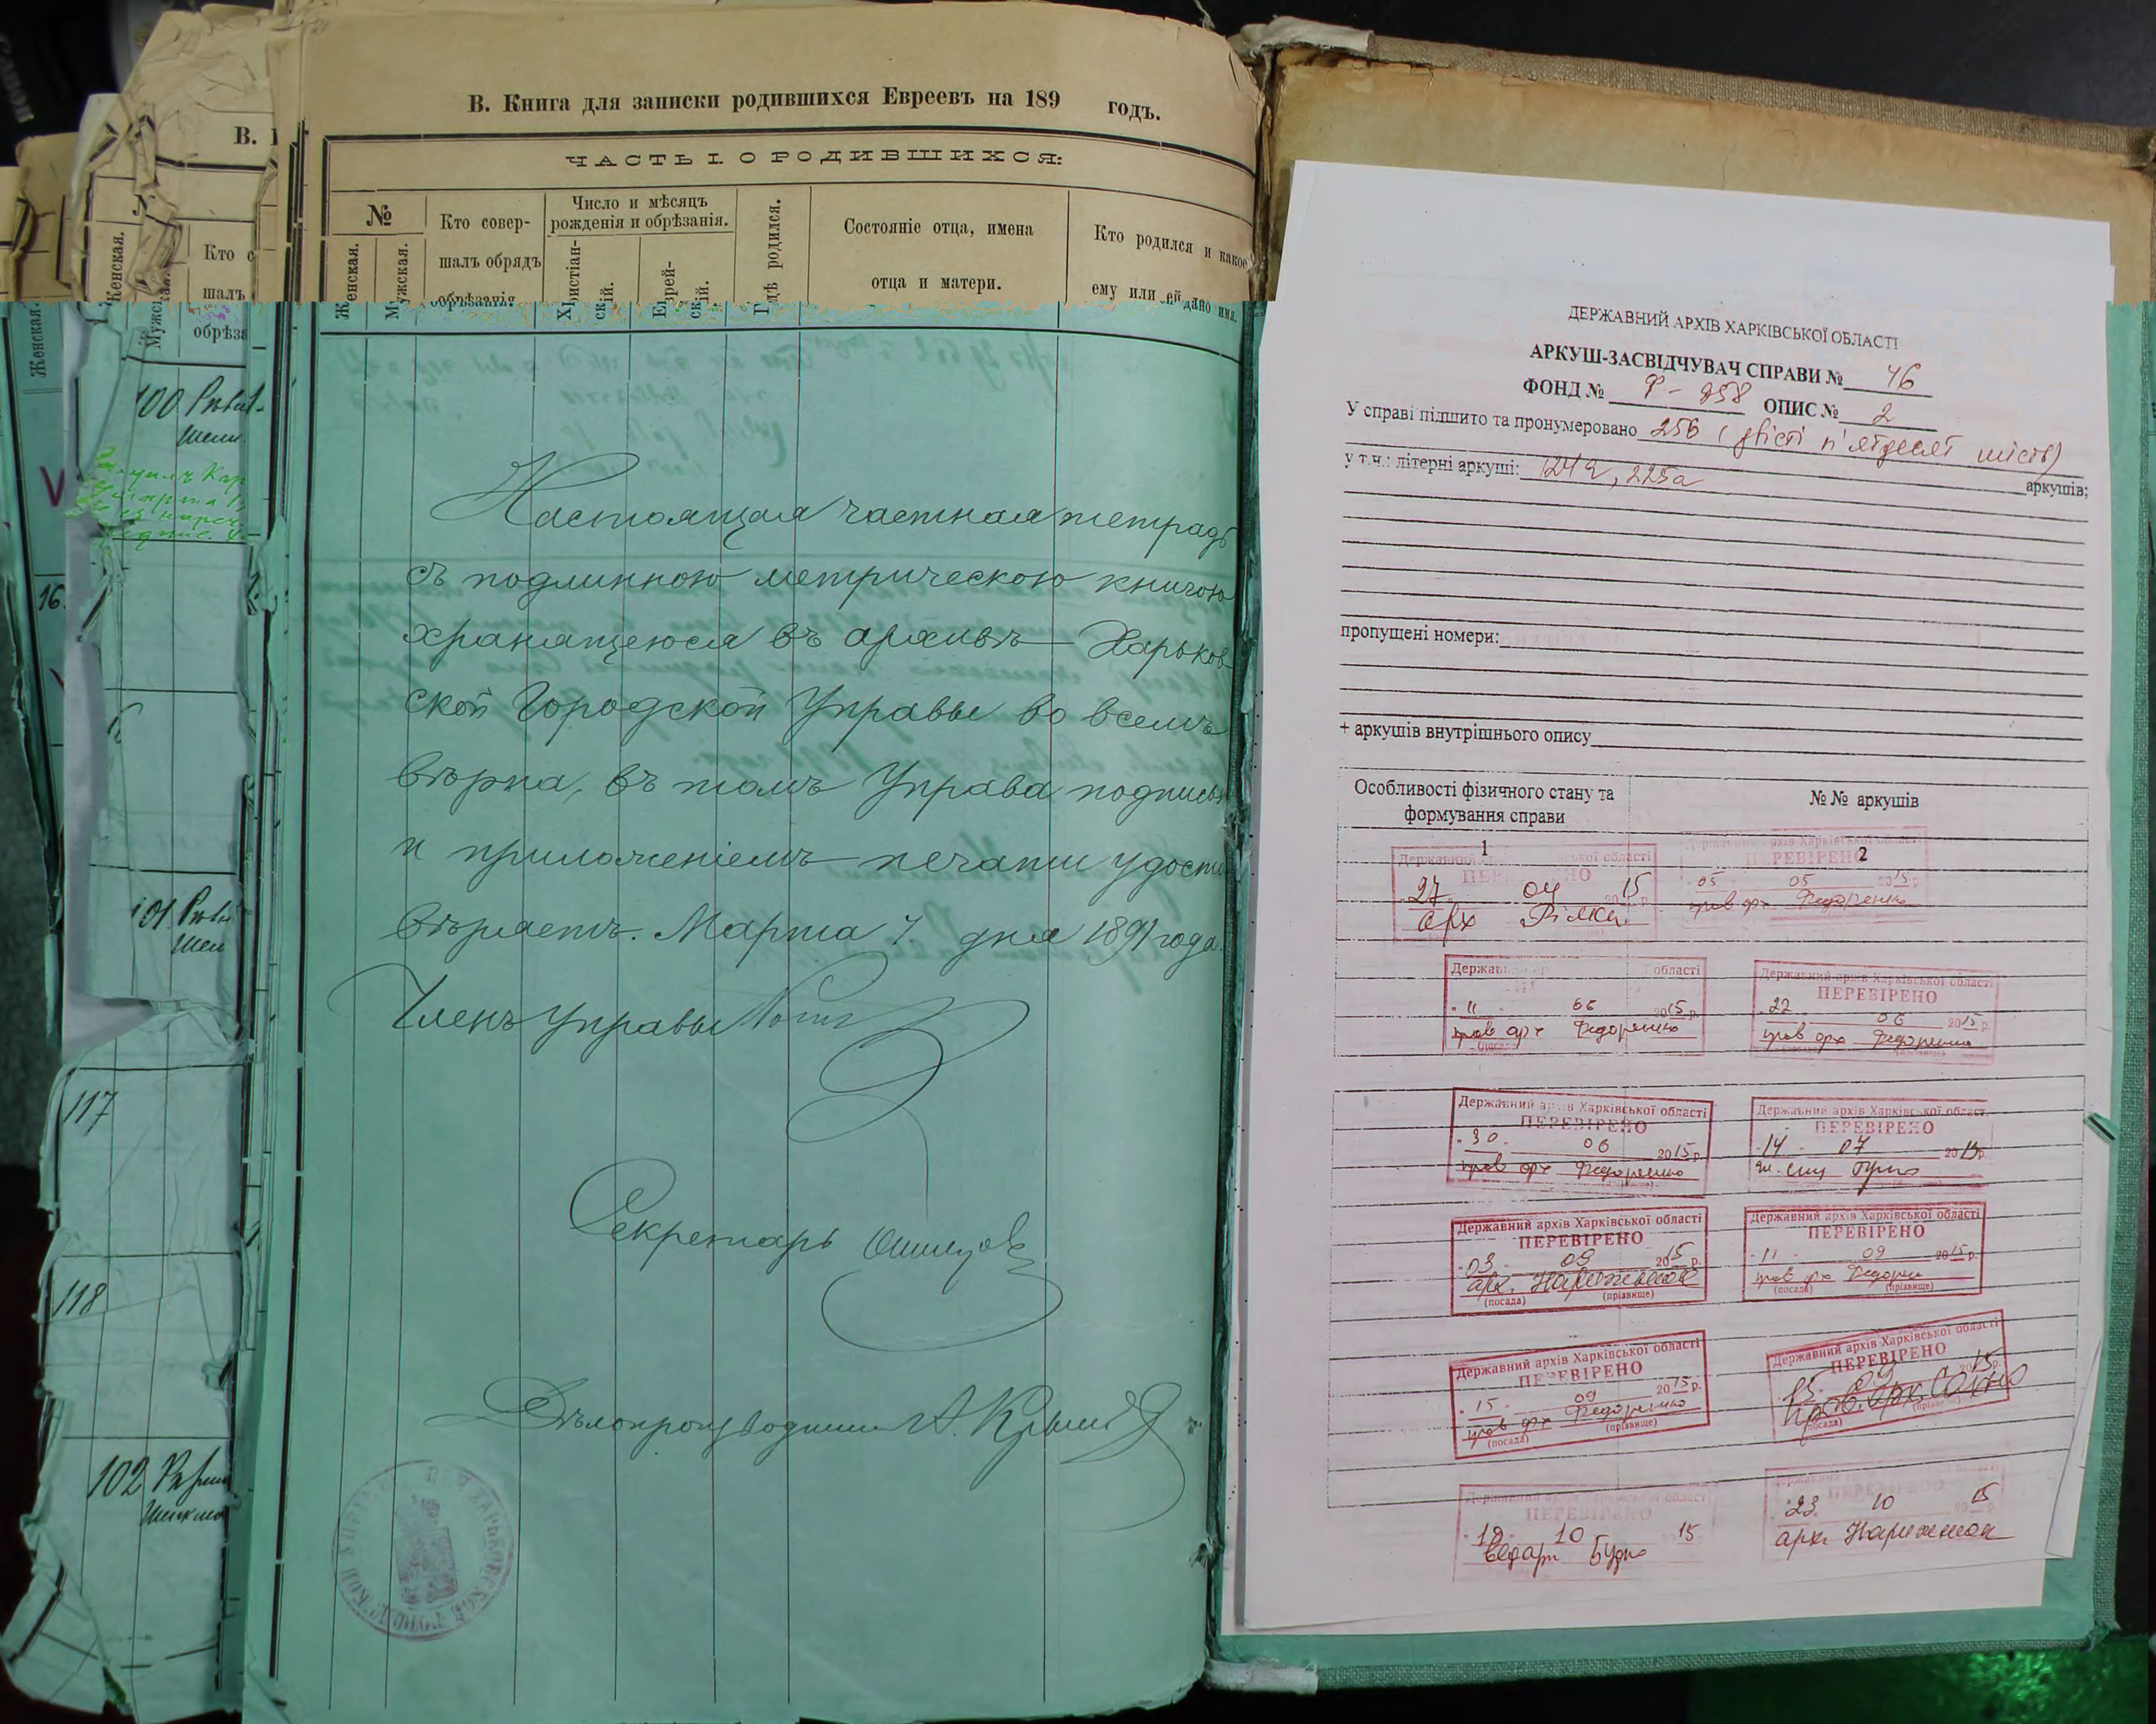 В.
Женская.
Мужская.
Кто
шалъ
обрѣза
Женская.
100
101
117
118
102
16
В. Книга для записки родившихся Евреевъ на 189 годъ.
ЧАСТЬ I. О РОДИВШИХСЯ:
№
Женская.
Мужская.
Кто совер-
шалъ обрядъ
обрѣзанія
Число и мѣсяцъ
рожденія и обрѣзанія.
Христіан-
скій.
Еврей-
скій.
Гдѣ родился.
Состояніе отца, имена
отца и матери.
Кто родился и какое
ему или ей дано имя.
Настоящая частная тетрадь
съ подлинною метрическою книгою
хранящеюся въ архивѣ Харьков-
ской Городской Управы во всемъ
вѣрна, въ томъ Управа подписью
и приложеніемъ печати удосто
вѣряетъ. Марта 7 дня 1891 года.
Членъ Управы
Секретарь
Дѣлопроизводитель
ДЕРЖАВНИЙ АРХІВ ХАРКІВСЬКОЇ ОБЛАСТІ
АРКУШ-ЗАСВІДЧУВАЧ СПРАВИ № 46
ФОНД № Ф - 958 ОПИС № 2
У справі підшито та пронумеровано 256 (двісті п'ятдесят шість)
аркушів;
у т.ч.: літерні аркуші: 124а, 225а
пропущені номери:
+ аркушів внутрішнього опису
Особливості фізичного стану та
формування справи
№ № аркушів
1
2
Державний архів Харківської області
ПЕРЕВІРЕНО
27 04 2015 р.
арх
Державний архів Харківської області
ПЕРЕВІРЕНО
05 05 2015 р.
пров арх Федоренко
Державний архів Харківської області
11 06 2015 р.
пров арх Федоренко
Державний архів Харківської області
ПЕРЕВІРЕНО
22 06 2015 р.
пров арх Федоренко
Державний архів Харківської області
ПЕРЕВІРЕНО
30 06 2015 р.
пров арх Федоренко
Державний архів Харківської област
ПЕРЕВІРЕНО
14 07 2015 р.
Державний архів Харківської області
ПЕРЕВІРЕНО
03 09 2015 р.
арх.
(посада) (прізвище)
Державний архів Харківської області
ПЕРЕВІРЕНО
11 09 2015 р.
пров арх Федорен
(посада) (прізвище)
Державний архів Харківської області
ПЕРЕВІРЕНО
15 09 2015 р.
пров арх Федоренко
(посада) (прізвище)
Державний архів Харківської області
ПЕРЕВІРЕНО
15 09 2015 р.
пров. арх.
(посада)
Державний архів Харківської області
ПЕРЕВІРЕНО
19 10 15
Державний архів Харківської області
ПЕРЕВІРЕНО
23 10 15
арх.